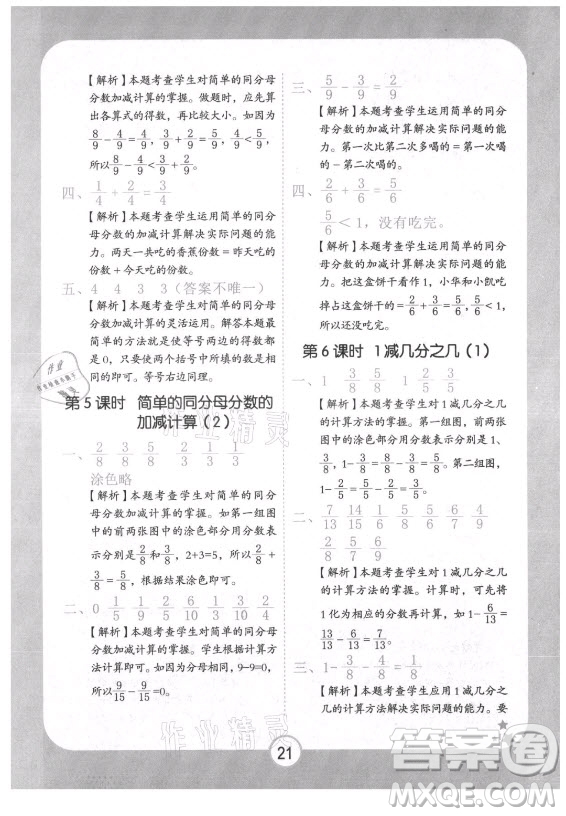 【解析】本题考查学生对简单的同分母
分数加减计算的掌握。做题时，应先算
出各算式的得数，再比较大小。如因为
8/9-4/9=4/9，3/9+2/9=5/9，4/9<5/9，
所以8/9-4/9<3/9+2/9。
四、1/4+2/4=3/4
【解析】本题考查学生运用简单的同分
母分数加减计算解决实际问题的能
力。两天一共吃的香蕉份数=昨天吃
的份数+今天吃的份数。
五、4 4 3 3(答案不唯一)
【解析】本题考查学生对简单的同分母
分数加减计算的灵活运用。解答本题最
关键的是要使等号两边的得数都
为整数，所以
可得等号左边两个括号
里。等号右边同理。
第5课时 简单的同分母分数的
加减计算(2)
一、2/8 3/8 5/8 2/3 1/3 1/3
涂色略
【解析】本题考查学生对简单的同分母
分数加减计算的掌握。如第一组图中
的前两张图中的涂色部分用分数表
示分别是2/8和3/8，2+3=5，所以2/8+
3/8=5/8，根据结果涂色即可。
二、0 1/5 5/9 2/6 3/10 1/10 2/4
【解析】本题考查学生对简单的同分母
分数加减计算的掌握。学生根据计算
方法计算即可。如因为分母相同，9-9=0，
所以9/15-9/15=0。
三、5/9-3/9=2/9
【解析】本题考查学生运用简单的同分
母分数的加减计算解决实际问题的能
力。第一次比第二次多喝的=第一次喝
的-第二次喝的。
四、2/6+3/6=5/6
5/6<1，没有吃完。
【解析】本题考查学生运用简单的同分
母分数的加减计算解决实际问题的能
力。把这盒饼干看作1，小华和小凯吃
掉占这盒饼干的2/6+3/6=5/6，5/6<1，
所以饼干没有吃完。
第6课时 1减几分之几(1)
一、1 3/8 5/8 1 2/5 3/5
【解析】本题考查学生对1减几分之几
计算方法的掌握。学生应用分数表示
第一组图中的涂色部分分别是1、
3/8，1-3/8=8/8-3/8=5/8。第二组图，
1-2/5=5/5-2/5=3/5。
二、7/13 14/15 1/6 5/8 6/7 4/9
2/8 5/8 6/7 5/9
【解析】本题考查学生对1减几分之几
的计算方法的掌握。计算时，可先将
1化为相应的分数再计算，如1-6/13=
13/13-6/13=7/13。
三、1-3/8-4/8=1/8
【解析】本题考查学生应用1减几分之
几的计算方法解决实际问题的能力。要
21
作业精灵
答案圈
MXQE.COM